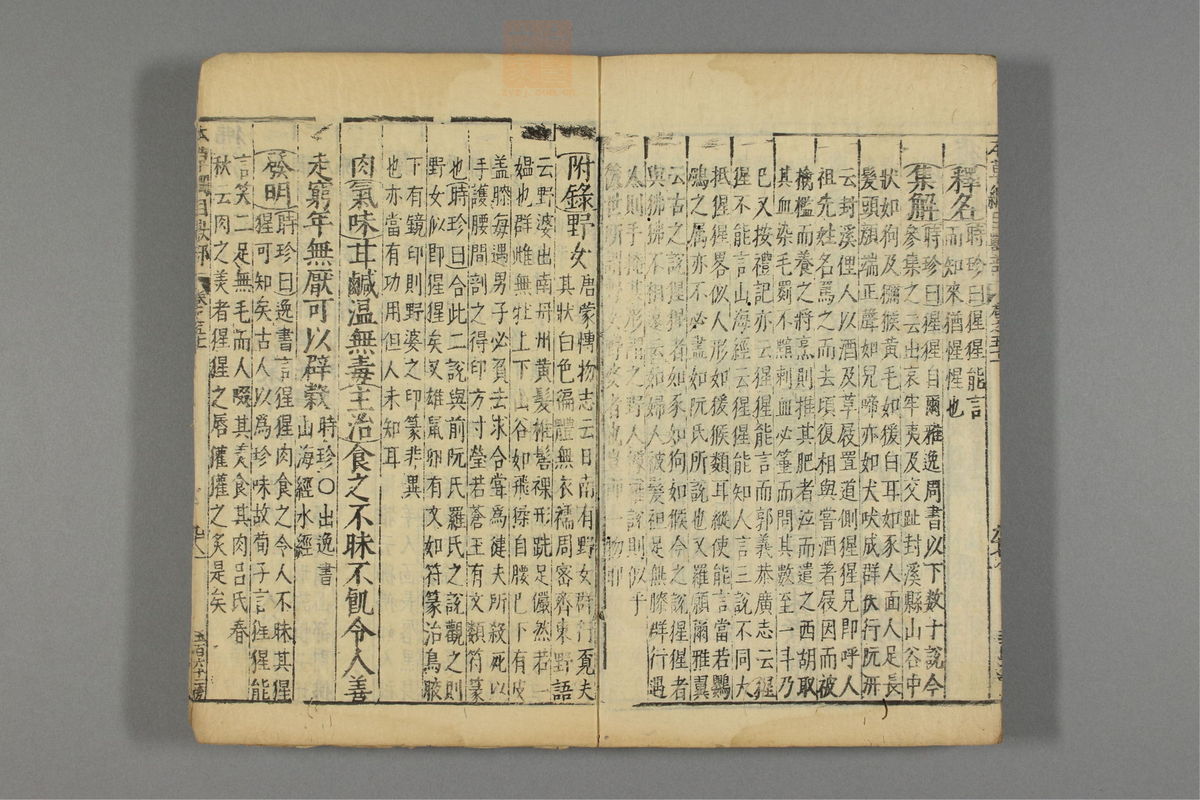 釋名 時珍曰猩猩能言
而知來猶惺惺也
集解 時珍曰猩猩自爾雅逸周書以下數十說今
參集之云出哀牢夷及交趾封溪縣山谷中
狀如狗及獼猴黃毛如猨白耳如豕人面人足長
髮頭顏端正聲如兒啼亦如犬吠成群伏行阮汧
云封溪俚人以酒及草屐置道側猩猩見即呼人
祖先姓名罵之而去頃復相與嘗酒著屐因而被
擒檻而養之將烹則推其肥者泣而遣之西胡取
其血染毛罽不黯刺血必箠而問其數至一斗乃
已又按禮記亦云猩猩能言而郭義恭廣志云猩
猩不能言山海經云猩猩能知人言三說不同大
抵猩猩畧似人形如猨猴類耳縱使能言當若鸚
鴞之属亦不必盡如阮氏所說也又羅願爾雅翼
云古之說猩猩者如豕如狗如猴今之說猩猩者
與狒狒不相遠云如婦人被髮袒足無膝群行遇
人則手掩其形謂之野人據此說則似乎
後世所謂野女野婆者也豈即一物耶
附錄野女 唐蒙博物志云日南有野女群行覓夫
其狀白色徧體無衣襦周密齊東野語
云野婆出南丹州黃髮椎髻裸形跣足儼然若一
媼也群雌無牡上下山谷如飛猱自腰已下有皮
盖膝每遇男子必負去求合嘗爲健夫所殺死以
手護腰間剖之得印方寸瑩若蒼玉有文類符篆
也時珍曰合此二說與前阮氏羅氏之說觀之則
野女似即猩猩矣又雄鼠卵有文如符篆治鳥腋
下有鏡印則野婆之印篆非異
也亦當有功用但人未知耳
肉氣味甘鹹温無毒主治食之不昧不飢令人善
走窮年無厭可以辟穀 時珍○出逸書
山海經水經
發明 時珍曰逸書言猩猩肉食之令人不昧其猩
猩可知矣古人以爲珍味故荀子言猩猩能
言笑二足無毛而人啜其羙食其肉呂氏春
秋云肉之美者猩猩之唇獾獾之炙是矣